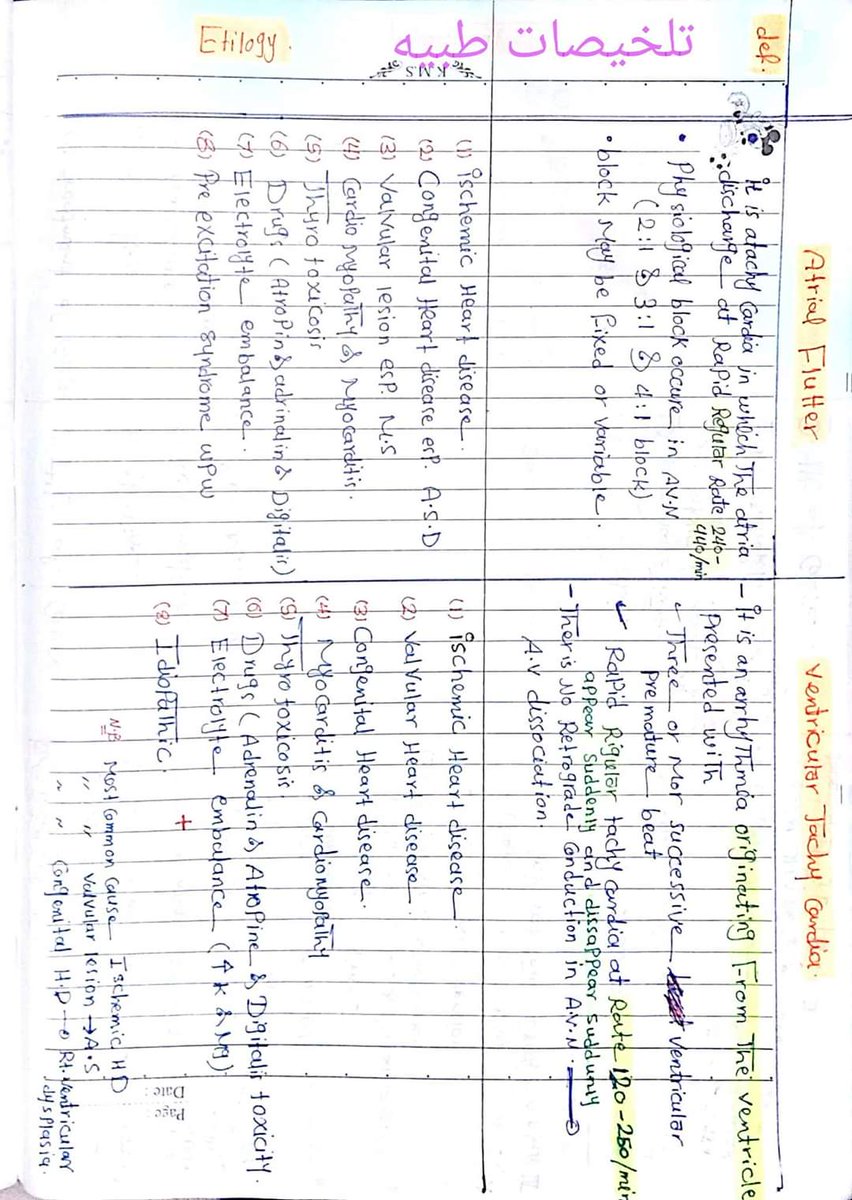 تلخيصات طبيه
K.M.S
Atrial Flutter
Ventricular Tachy Cardia.
def:
it is a tachy Cardia in which The atria
discharge at Rapid Regular Rate 240-
440/min
• Physiological block occure in AV.N
(2:1 & 3:1 & 4:1 block)
• block May be fixed or variable.
- It is an arrhyThmia originating From The ventricle
Presented with
Three or Mor successive ventricular
premature beat
Rapid Rigular tachy cardia at Rate 120-250/min
appear suddenly and dissappear suddunly
- Ther is No Retrograde Conduction in A.V.N. →
A.V dissociation.
Etilogy.
(1) ischemic Heart disease.
(2) Congenital Heart disease esp. A.S.D
(3) Valvular lesion esp. M.S
(4) Cardio Myopathy & Myocarditis.
(5) Thyrotoxicosis
(6) Drugs (Atropin & adrinalin & Digitalis)
(7) Electrolyte embalance.
(8) Pre excitation syndrome WPW
(1) ischemic Heart disease.
(2) Valvular Heart disease.
(3) Congenital Heart disease.
(4) Myocarditis & Cardiomyopathy
(5) Thyrotoxicosis.
(6) Drugs (Adrenalin & Atropine & Digitalis toxicity.
(7) Electrolyte embalance (↑ K & Mg)
+
(8) Idiopathic.
N.B Most Common Cause Ischemic HD
" " Valvular lesion → A.S
" " Congenital H.D → Rt. ventricular
dysplasia.
Page:
Date: